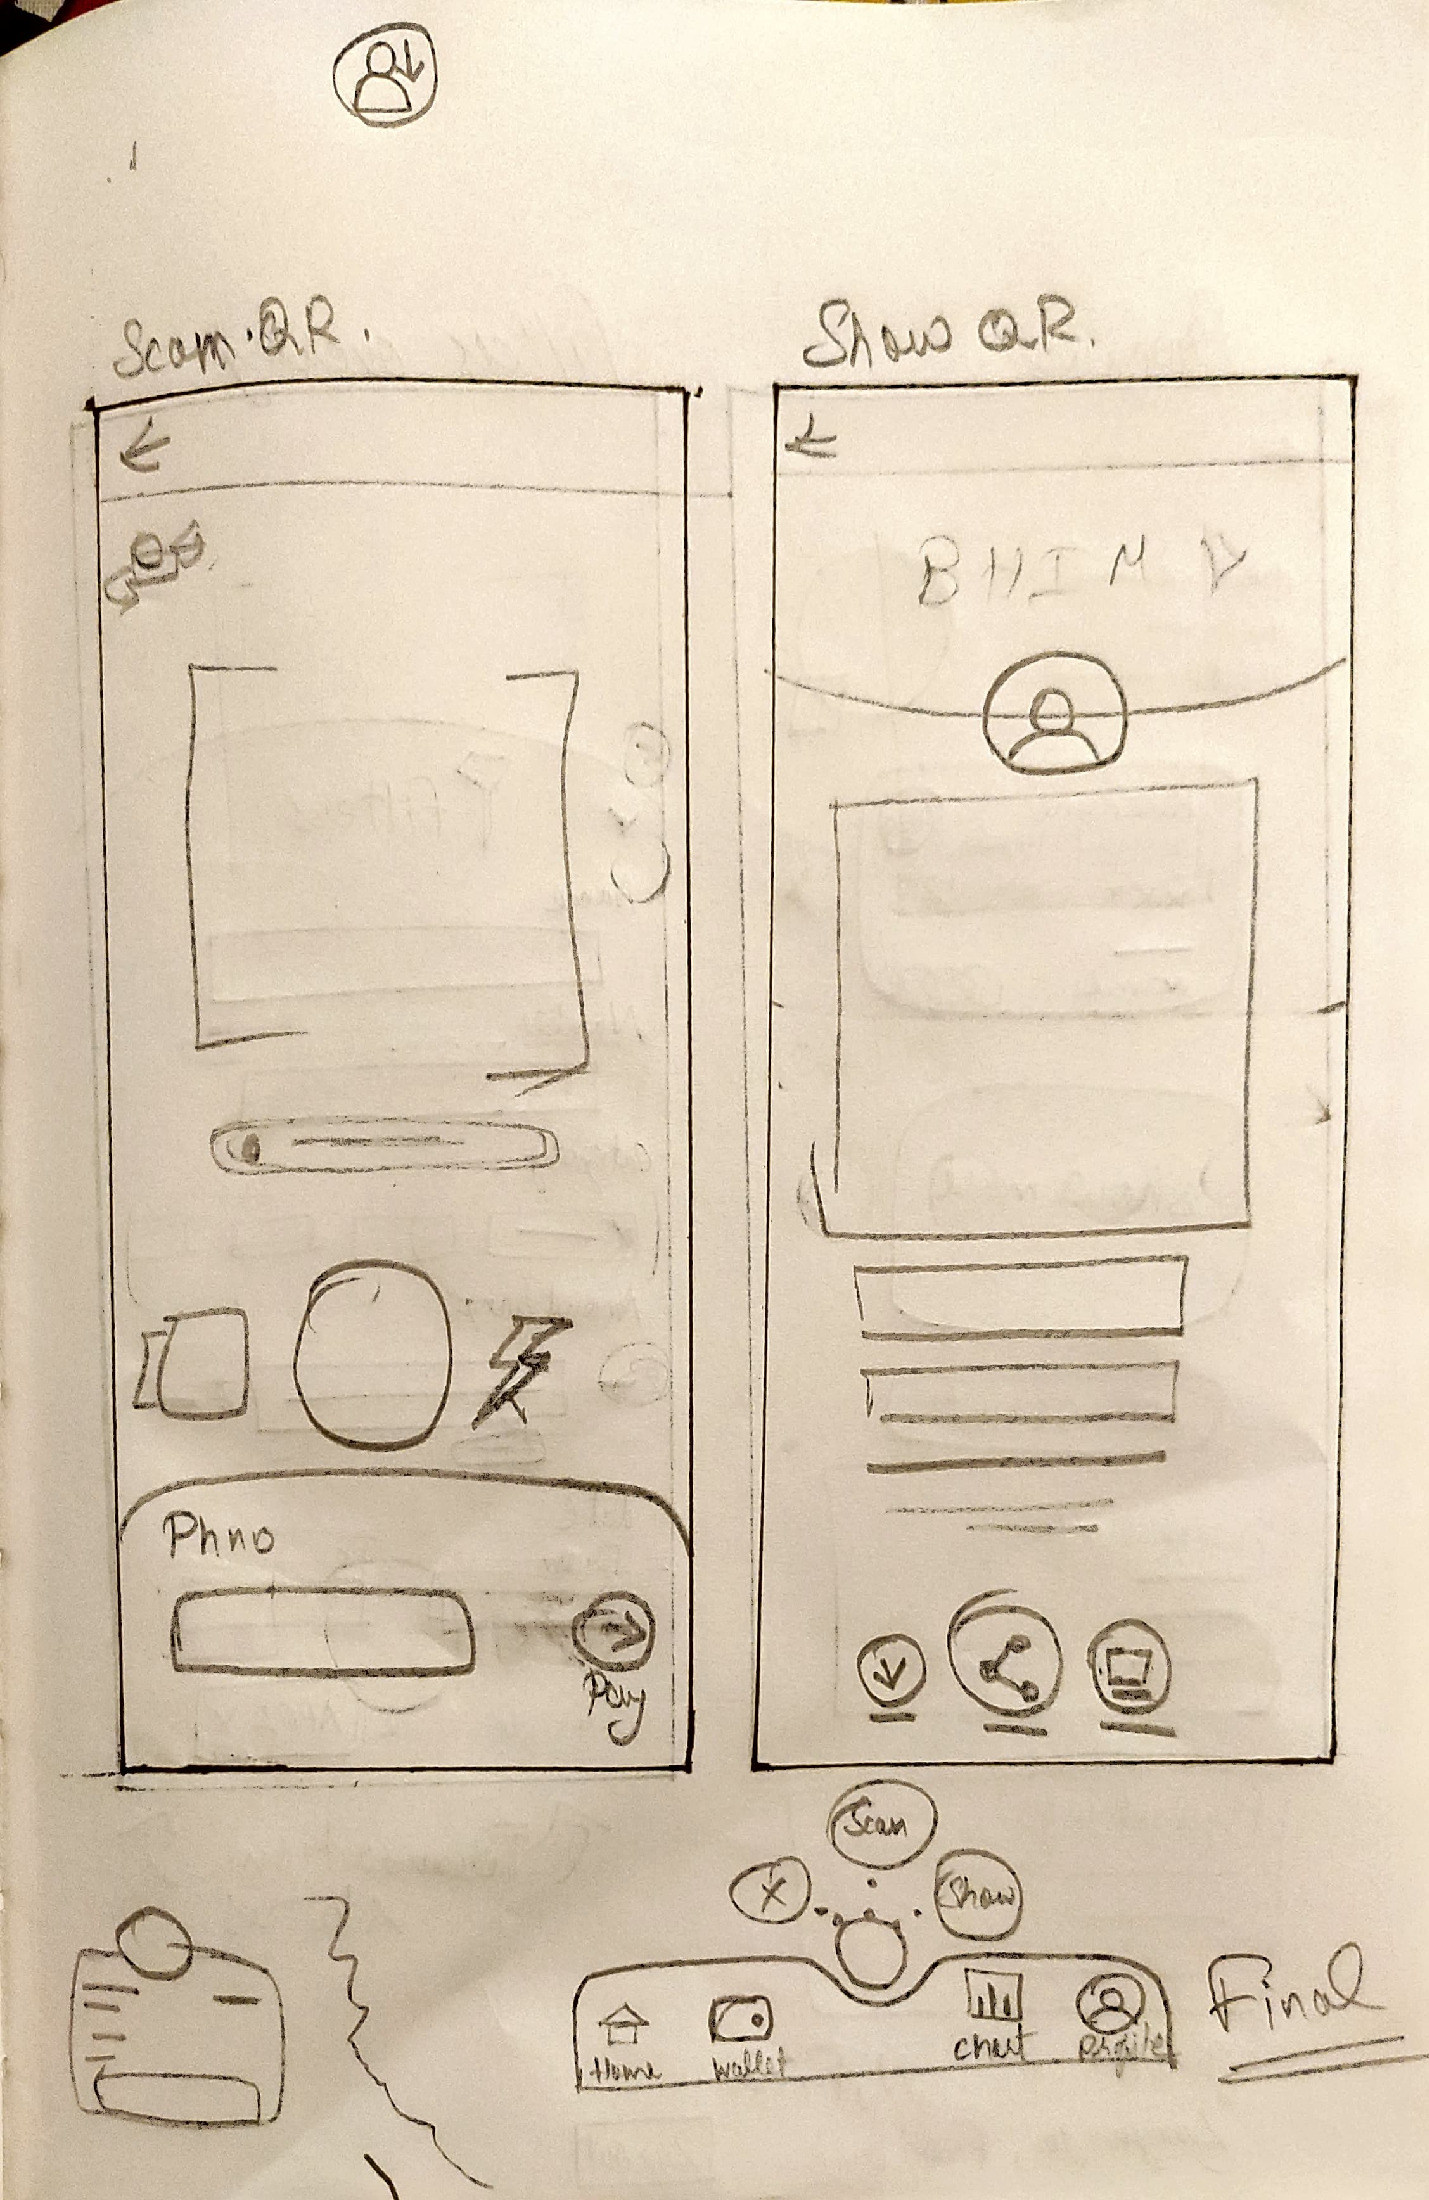 Scan QR.
Show QR.
BHIM
Phno
Pay
Scan
X
Show
Home
Wallet
chart
Profile
Final